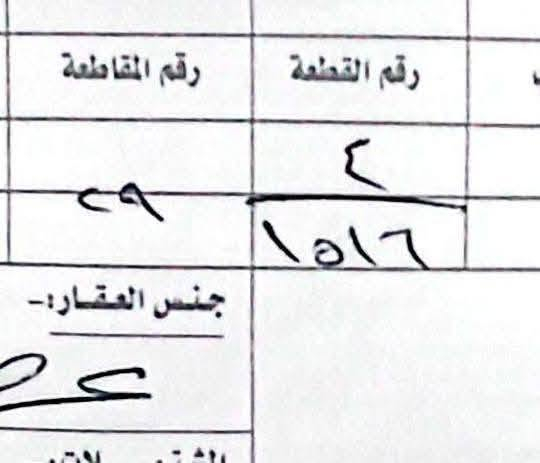 رقم القطعة رقم المقاطعة
٤
٢٩
١٥١٦
جنس العقـار:-